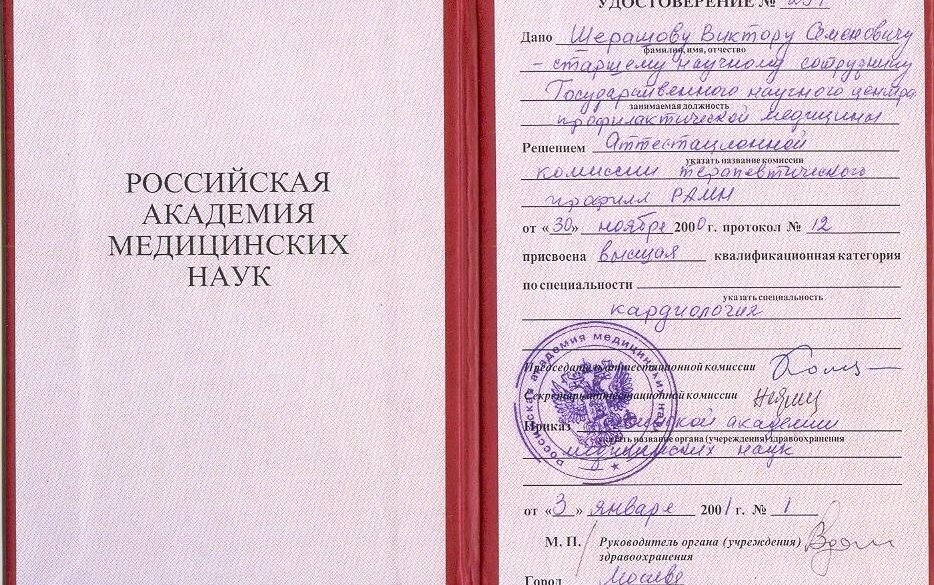 РОССИЙСКАЯ
АКАДЕМИЯ
МЕДИЦИНСКИХ
НАУК
УДОСТОВЕРЕНИЕ №
Дано Шерашову Виктору Семеновичу
фамилия, имя, отчество
- старшему научному сотруднику
Государственного научного центра
занимаемая должность
профилактической медицины
Решением Аттестационной
указать название комиссии
комиссии терапевтического
профиля РАМН
от «30» ноября 2000 г. протокол № 12
присвоена высшая квалификационная категория
по специальности
указать специальность
кардиология
Председатель аттестационной комиссии
Секретарь аттестационной комиссии
Приказ академии
указать название органа (учереждения) здравоохранения
медицинских наук
от «3» января 2001 г. № 1
М. П. Руководитель органа (учреждения)
здравоохранения
Город Москва
российская академия медицинских наук